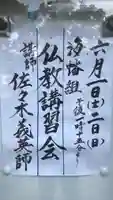 六月一日(土)二日(日)
午後一時十五分〜
汐路組
仏教講習会
講師 佐々木義英師